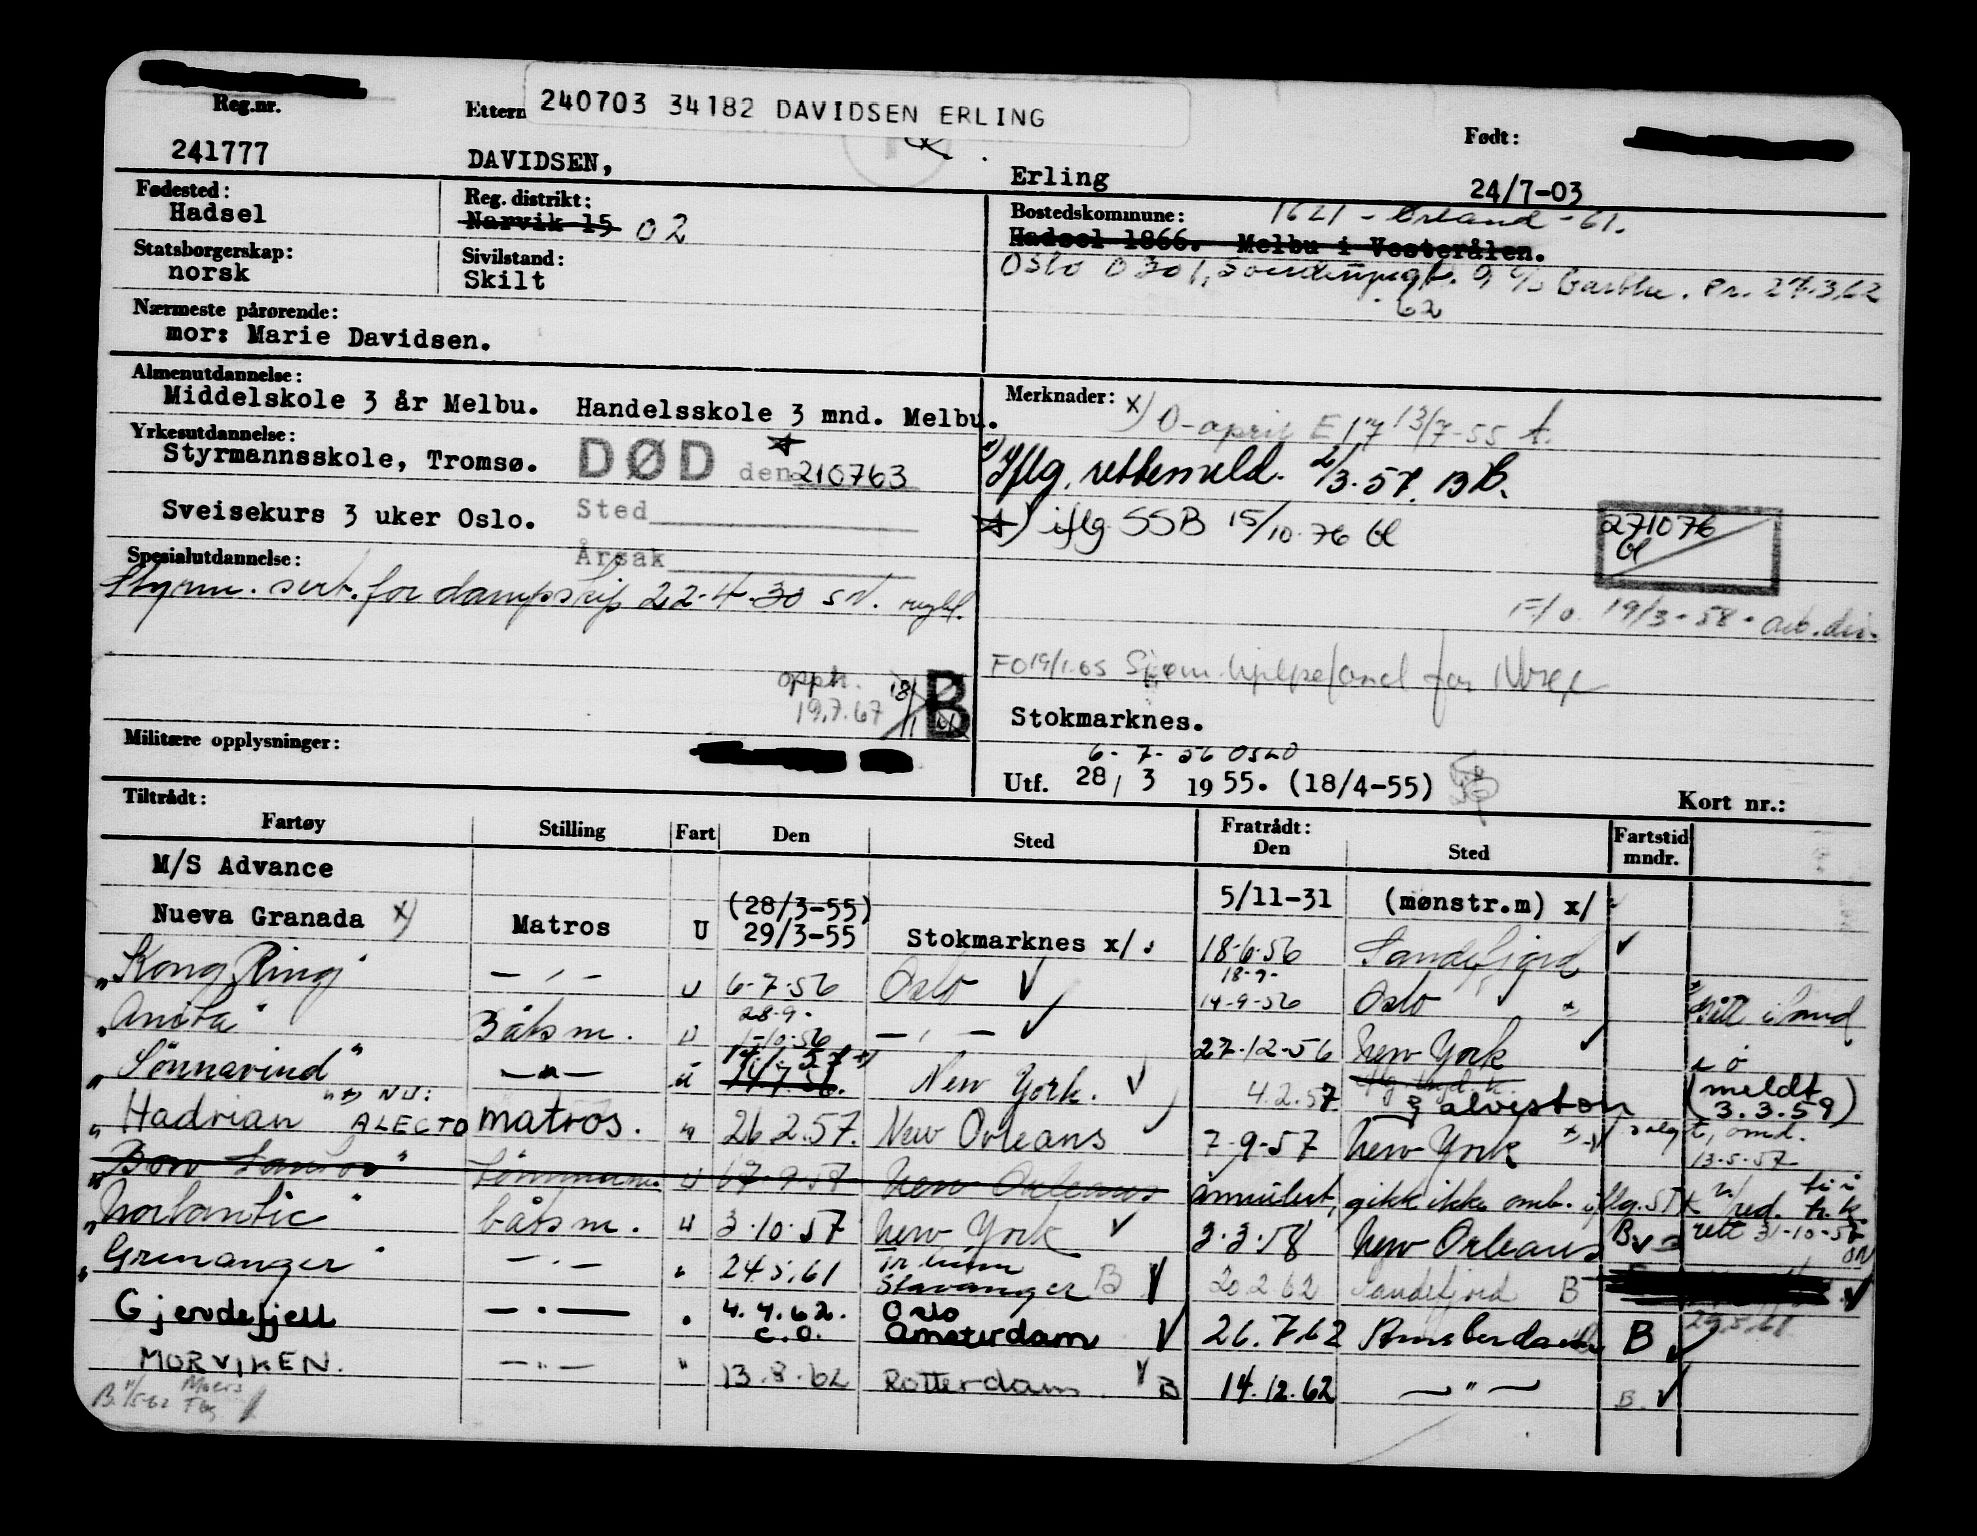 Reg.nr.
Ettern
240703 34182 DAVIDSEN ERLING
Født:
241777
DAVIDSEN,
Erling
24/7-03
Fødested:
Hadsel
Reg. distrikt:
Narvik 15 02
Bostedskommune:
1621 - Ørland - 61.
Hadsel 1866. Melbu i Vesterålen.
Statsborgerskap:
norsk
Sivilstand:
Skilt
Oslo 0301, 9 c/o Garthe. Pr. 27.3.62
62
Nærmeste pårørende:
mor: Marie Davidsen.
Almenutdannelse:
Middelskole 3 år Melbu. Handelsskole 3 mnd. Melbu.
Merknader: x) O-april E 17 13/7-55 A.
Yrkesutdannelse:
Styrmannsskole, Tromsø.
DØD den 210763
Iflg. rettemeld. 2/3.57. BB.
Sveisekurs 3 uker Oslo.
Sted
iflg SSB 15/10-76 bl
271076
bl
Spesialutdannelse:
Årsak
Styrm. sert. for dampskip 22-4-30
F/o. 19/3-58 - arb.dir.
FO 19/1.65 Sjøm. hjelpefond for
opph.
19.7.67
18/11
B
Stokmarknes.
Militære opplysninger:
6-7-56 OSLO
Utf. 28/ 3 1955. (18/4-55)
Kort nr.:
Tiltrådt:
Fartøy
Stilling
Fart
Den
Sted
Fratrådt:
Den
Sted
Fartstid
mndr.
M/S Advance
5/11-31 (mønstr.m) x/
Nueva Granada x) Matros U (28/3-55) 29/3-55 Stokmarknes x/. 18-6-56 Sandefjord
"Kong Ring" — , — U 6-7-56 Oslo 18-9- 14-9-56 Oslo
"Anita" Båtsm. U 28-9- 1-10-56 — , — 27-12-56 New York
"Sönnavind" — " — " 14.1.57 New York. 4.2.57 Galveston (meldt 3.3.59)
"Hadrian" NU: ALECTO Matros. " 26.2.57. New Orleans 7-9-57 New York solgt, omd. 13-5-57
New Orleans annulert, gikk ikke omb. iflg.
"Norlantic" båtsm. " 3-10-57 New York 3-3-58 New Orleans B rett 31-10-58
"Grenanger" — . — " 24.5.61 Tr.heim Stavanger B 20.2.62 Sandefjord B
29.5.61
Gjendefjell — . — " 4.4.62. c.o. Oslo Amsterdam 26.7.62 Amsterdam B
MORVIKEN. — " — " 13.8.62 Rotterdam. B 14.12.62 — " — B